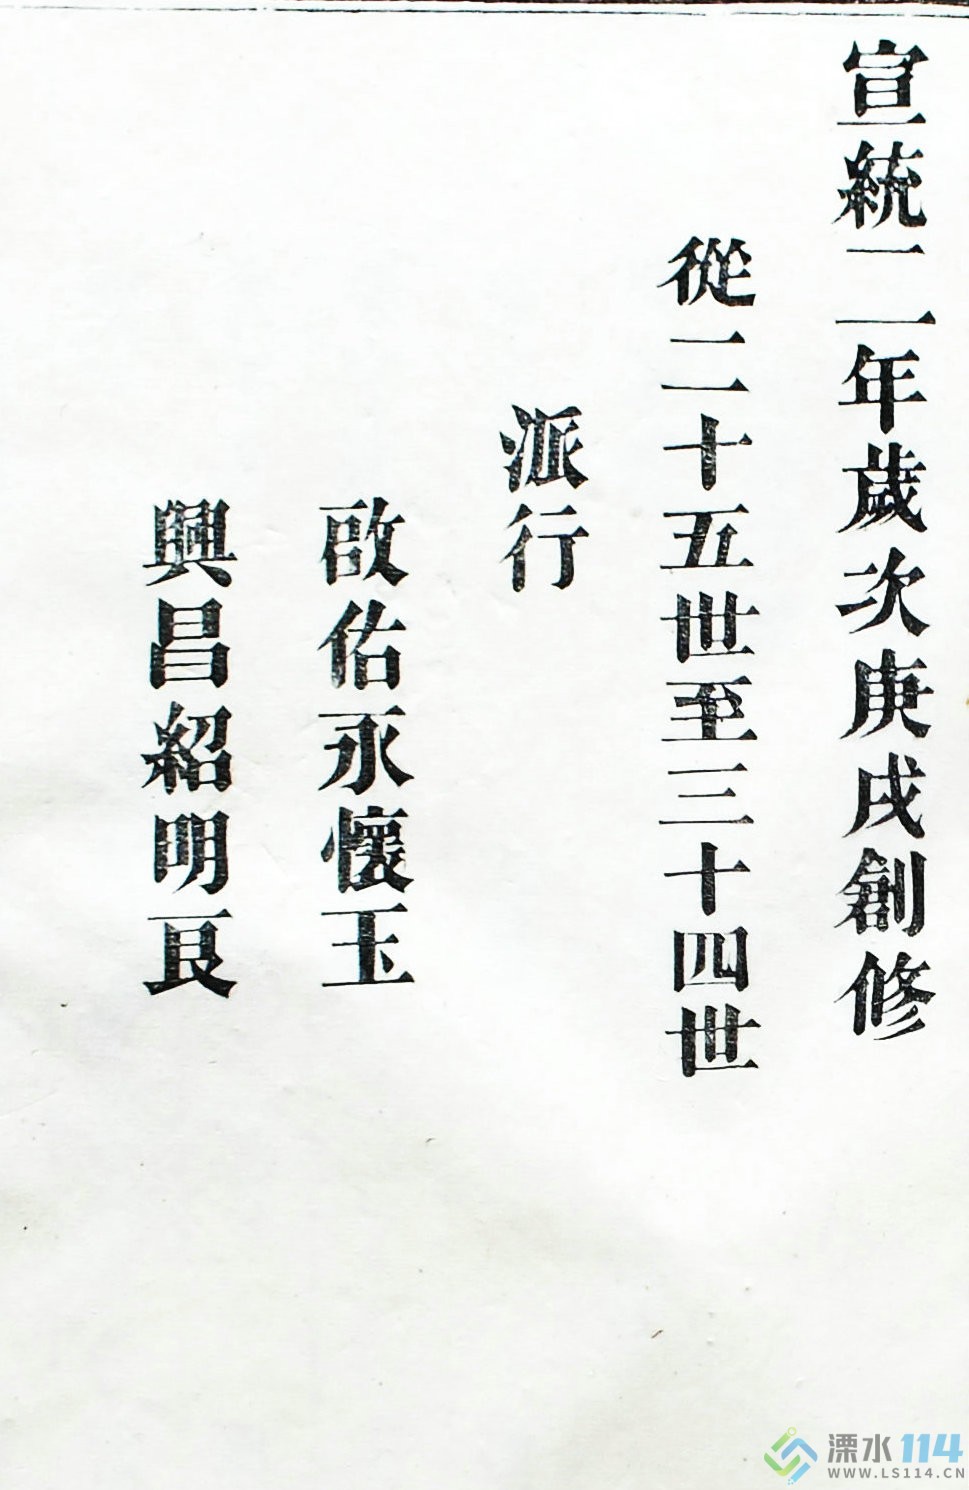 宣統二年歲次庚戌創修
從二十五世至三十四世
派行
啟佑永懷玉
興昌紹明良
溧水114
WWW.LS114.CN